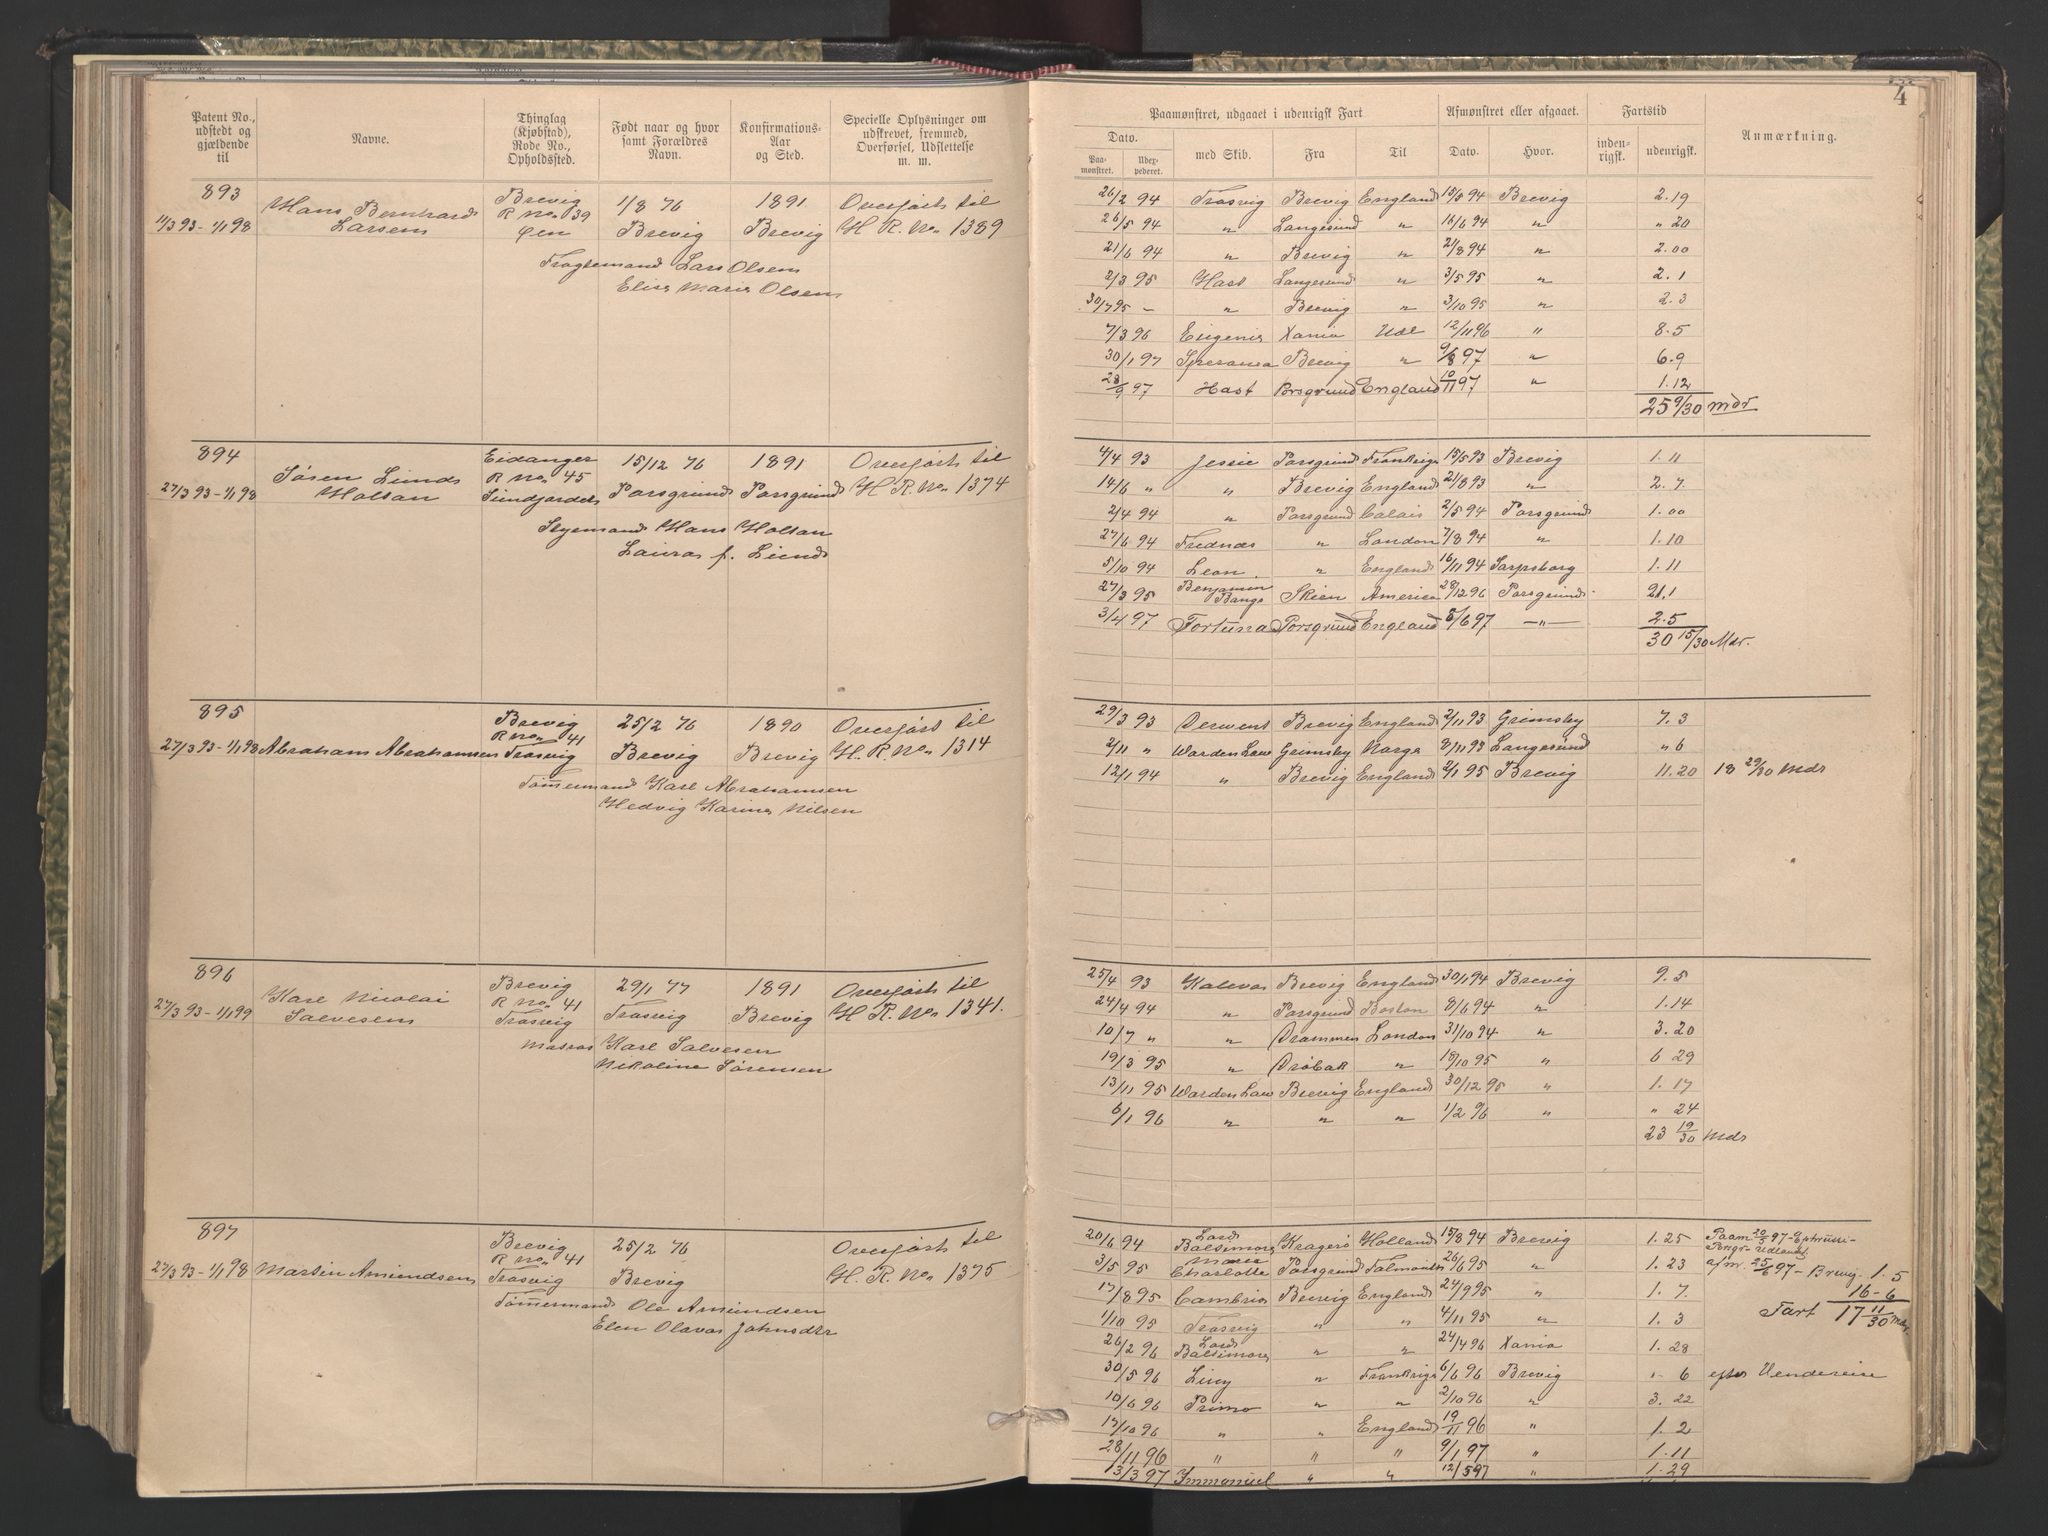 4
Patent No., udstedt og gjældende til | Navne. | Thinglag (Kjøbstad), Rode No., Opholdssted. | Født naar og hvor samt Forældres Navn. | Konfirmations-Aar og Sted. | Specielle Oplysninger om udskrevet, fremmed, Overførsel, Udslettelse m. m.
893
11/3 93 - 1/1 98
Hans Bernhard
Larsen
Brevig
R no. 39
Øen
1/8 76
Brevig
1891
Brevig
Overført til
H. R. No. 1389
Lars Olsen
Elise Marie Olsen
894
27/3 93 - 1/1 98
Søsen Lund
Holtan
Eidanger
R no. 45
15/12 76
Porsgrund
1891
Porsgrund
Overført til
H. R. No. 1374
Hans Holtan
Laura f. Lund
895
27/3 93 - 1/1 98
Abraham Abrahamsen
Brevig
R no. 41
Trosvig
25/2 76
Brevig
1890
Brevig
Overført til
H. R. No. 1314
Tømmermand Karl Abrahamsen
Hedvig Karine Nilsen
896
27/3 93 - 1/1 99
Karl Nicolai
Salvesen
Brevig
R no. 41
Trosvig
29/1 77
Trosvig
1891
Brevig
Overført til
H. R. No. 1341.
Matros Karl Salvesen
Nikoline Sørensen
897
27/3 93 - 1/1 98
Martin Amundsen
Brevig
R no. 41
Trosvig
25/2 76
Brevig
Overført til
H. R. No. 1375
Tømmermand Ole Amundsen
Elen Olava Johnsdtr
Paamønstret, udgaaet i udenrigsk Fart | Afmønstret eller afgaaet. | Fartstid | Anmærkning.
Dato. | med Skib. | Fra | Til | Dato. | Hvor. | indenrigsk. | udenrigsk.
Paamønstret. | Uderpederet.
26/2 94 Trosvig Brevig England 15/5 94 Brevig 2.19
26/5 94 " Langesund " 16/6 94 " " 20
21/6 94 " Brevig " 21/8 94 " 2.00
2/3 95 Hast Langesund " 3/5 95 " 2.1
30/7 95 - " Brevig " 3/10 95 " 2.3
7/3 96 Eugenie Xania Udl 12/11 96 " 8.5
30/1 97 Speranza Brevig " 9/8 97 " 6.9
28/9 97 Hast Porsgrund England 10/11 97 " 1.12
25 9/30 Mdr
4/4 93 Jessie Porsgrund Frankrige 15/5 93 Brevig 1.11
14/6 " " Brevig England 21/8 93 " 2.7.
2/4 94 " Porsgrund Calais 2/5 94 Porsgrund 1.00
27/6 94 Frednæs " London 7/8 94 " 1.10
5/10 94 Leon " England 16/11 94 Sarpsborg 1.11
27/3 95 Benjamin Bangs Skien America 28/12 96 Porsgrund 21.1
31/4 97 Fortuna Porsgrund England 5/6 97 —"— 2.5
30 15/30 Mdr.
29/3 93 Derwent Brevig England 2/11 93 Grimsby 7.3
2/11 " Warden Law Grimsby Norge 8/11 93 Langesund " 6
12/1 94 " Brevig England 2/1 95 Brevig 11.20 18 29/30 Mdr
25/4 93 Kaleva Brevig England 30/1 94 Brevig 9.5
24/4 94 " Porsgrund Boston 8/6 94 " 1.14
10/7 " " Drammen London 31/10 94 " 3.20
19/3 95 " Drøbak " 18/10 95 " 6 29
13/11 95 Warden Law Brevig England 30/12 95 " 1.17
6/1 96 " " " 1/2 96 " " 24
23 19/30 Mdr
20/6 94 Lord Baltimore Kragerø Holland 15/8 94 Brevig 1.25 Paam 20/5 97 - Ephrussi-
Porsgr. Udlandet
3/5 95 Marie Charlotte Porsgrund Falmouth 26/6 95 " 1.23 afm. 25/6 97 - Brevig 1.5
17/8 95 Cambria Brevig England 24/9 95 " 1.7. 16-6
1/10 95 Trosvig " " 4/11 95 " 1.3 Fart 17 11/30 Mdr.
26/2 96 Lord Baltimore " " 24/4 96 Xania 1.28
30/5 96 Lucy " Frankrige 6/6 96 Brevig " 6 efter Vendereise
10/6 96 Primo " " 2/10 96 " 3.22
17/10 96 " " England 19/11 96 " 1.2
28/11 96 " " " 9/1 97 " 1.11
13/3 97 Immanuel " " 12/5 97 " 1.29